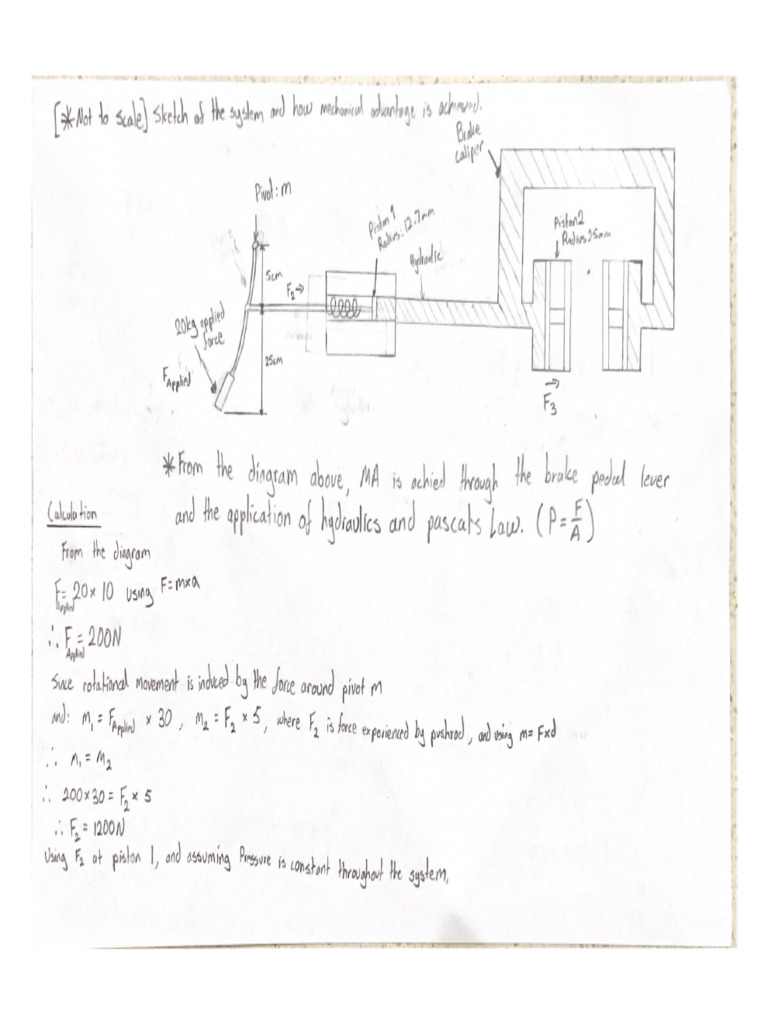 [*Not to scale] Sketch of the system and how mechanical advantage is achieved.
Brake
caliper
Pivot: m
Piston 1
Radius: 12.7mm
Piston 2
Radius 25mm
Hydraulic
5cm
F2→
20kg applied
force
25cm
FApplied
→
F3
*From the diagram above, MA is achied through the brake pedal lever
and the application of hydraulics and pascals Law. (P = F/A)
Calculation
From the diagram
FApplied = 20 × 10 using F = m×a
∴ FApplied = 200N
Since rotational movement is induced by the force around pivot m
and: m1 = FApplied × 30, m2 = F2 × 5, where F2 is force experienced by pushrod, and using m = F×d
∴ m1 = m2
∴ 200×30 = F2 × 5
∴ F2 = 1200N
Using F2 at piston 1, and assuming Pressure is constant throughout the system,